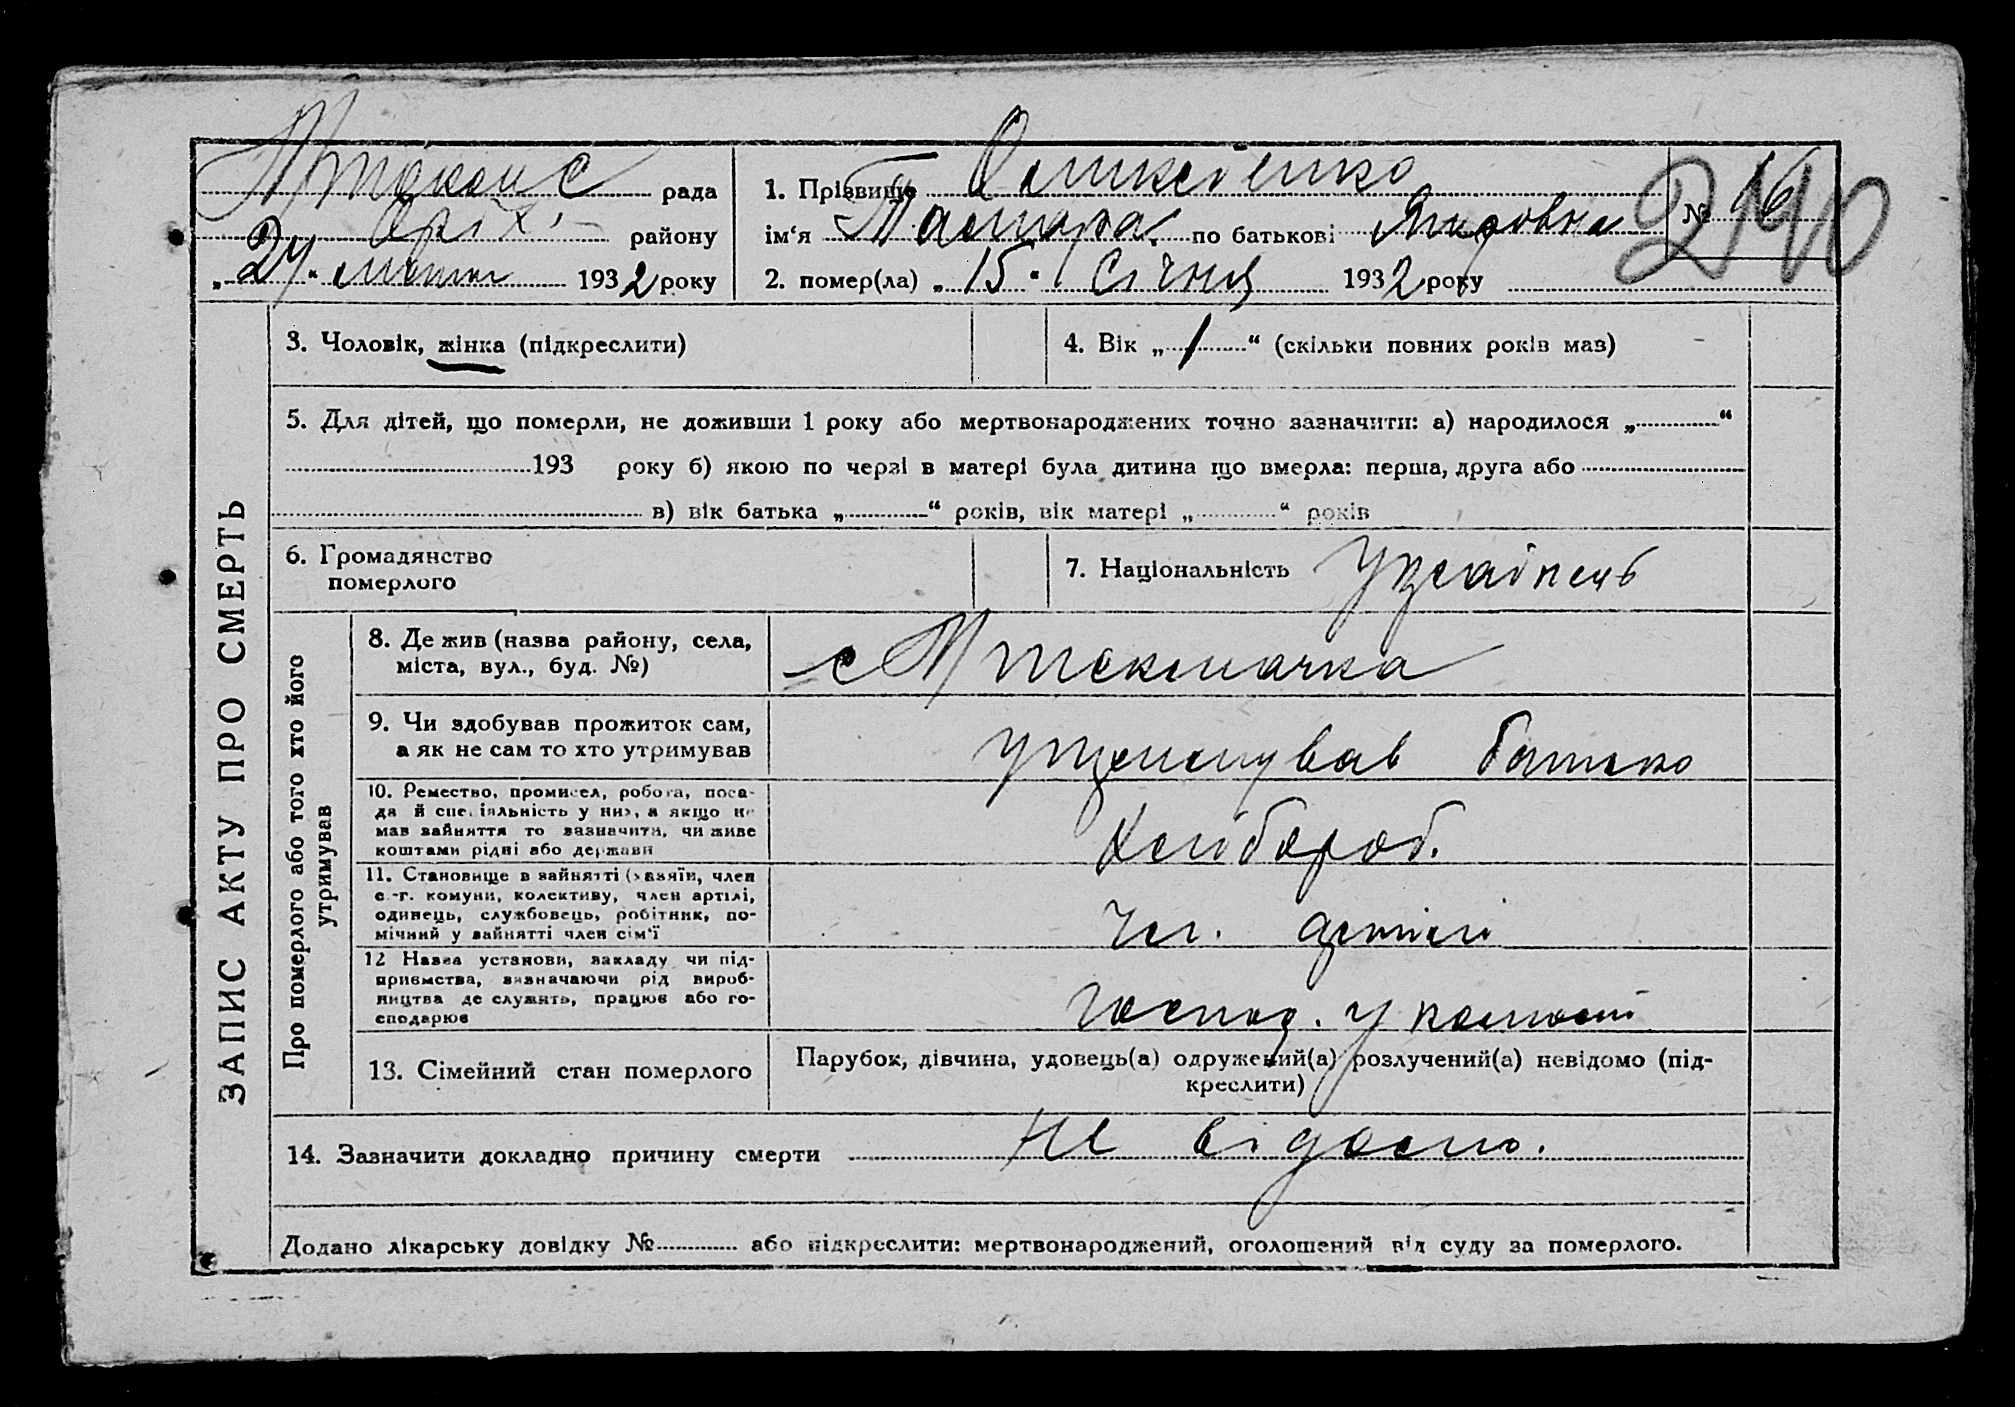 рада
району
„24“ лютого 1932 року
1. Прізвище
ім‘я Тамара по батькові
№ 16
240
2. помер(ла) „15“ Січня 1932 року
ЗАПИС АКТУ ПРО СМЕРТЬ
3. Чоловік, жінка (підкреслити)
4. Вік „1“ (скільки повних років мав)
5. Для дітей, що померли, не доживши 1 року або мертвонароджених точно зазначити: а) народилося „ “
193 року б) якою по черзі в матері була дитина що вмерла: перша, друга або
в) вік батька „ “ років, вік матері „ “ років
6. Громадянство
померлого
7. Національність Українець
Про померлого або того хто його
утримував
8. Де жив (назва району, села,
міста, вул., буд. №)
с
9. Чи здобував прожиток сам,
а як не сам то хто утримував
утримував батько
10. Ремество, промисел, робота, поса-
да й спеціяльність у них, а якщо не
мав зайняття то зазначити, чи живе
коштами рідні або держави
Хлібороб.
11. Становище в зайнятті (хазяїн, член
с.-г. комуни, колективу, член артілі,
одинець, службовець, робітник, по-
мічний у зайнятті член сім‘ї
Чл. артілі
12 Назва установи, закладу чи під-
приємства, визначаючи рід вироб-
ництва де служить, працює або го-
сподарює
Господ. у
13. Сімейний стан померлого
Парубок, дівчина, удовець(а) одружений(а) розлучений(а) невідомо (під-
креслити)
14. Зазначити докладно причину смерти не відомо.
Додано лікарську довідку № або підкреслити: мертвонароджений, оголошений від суду за померлого.